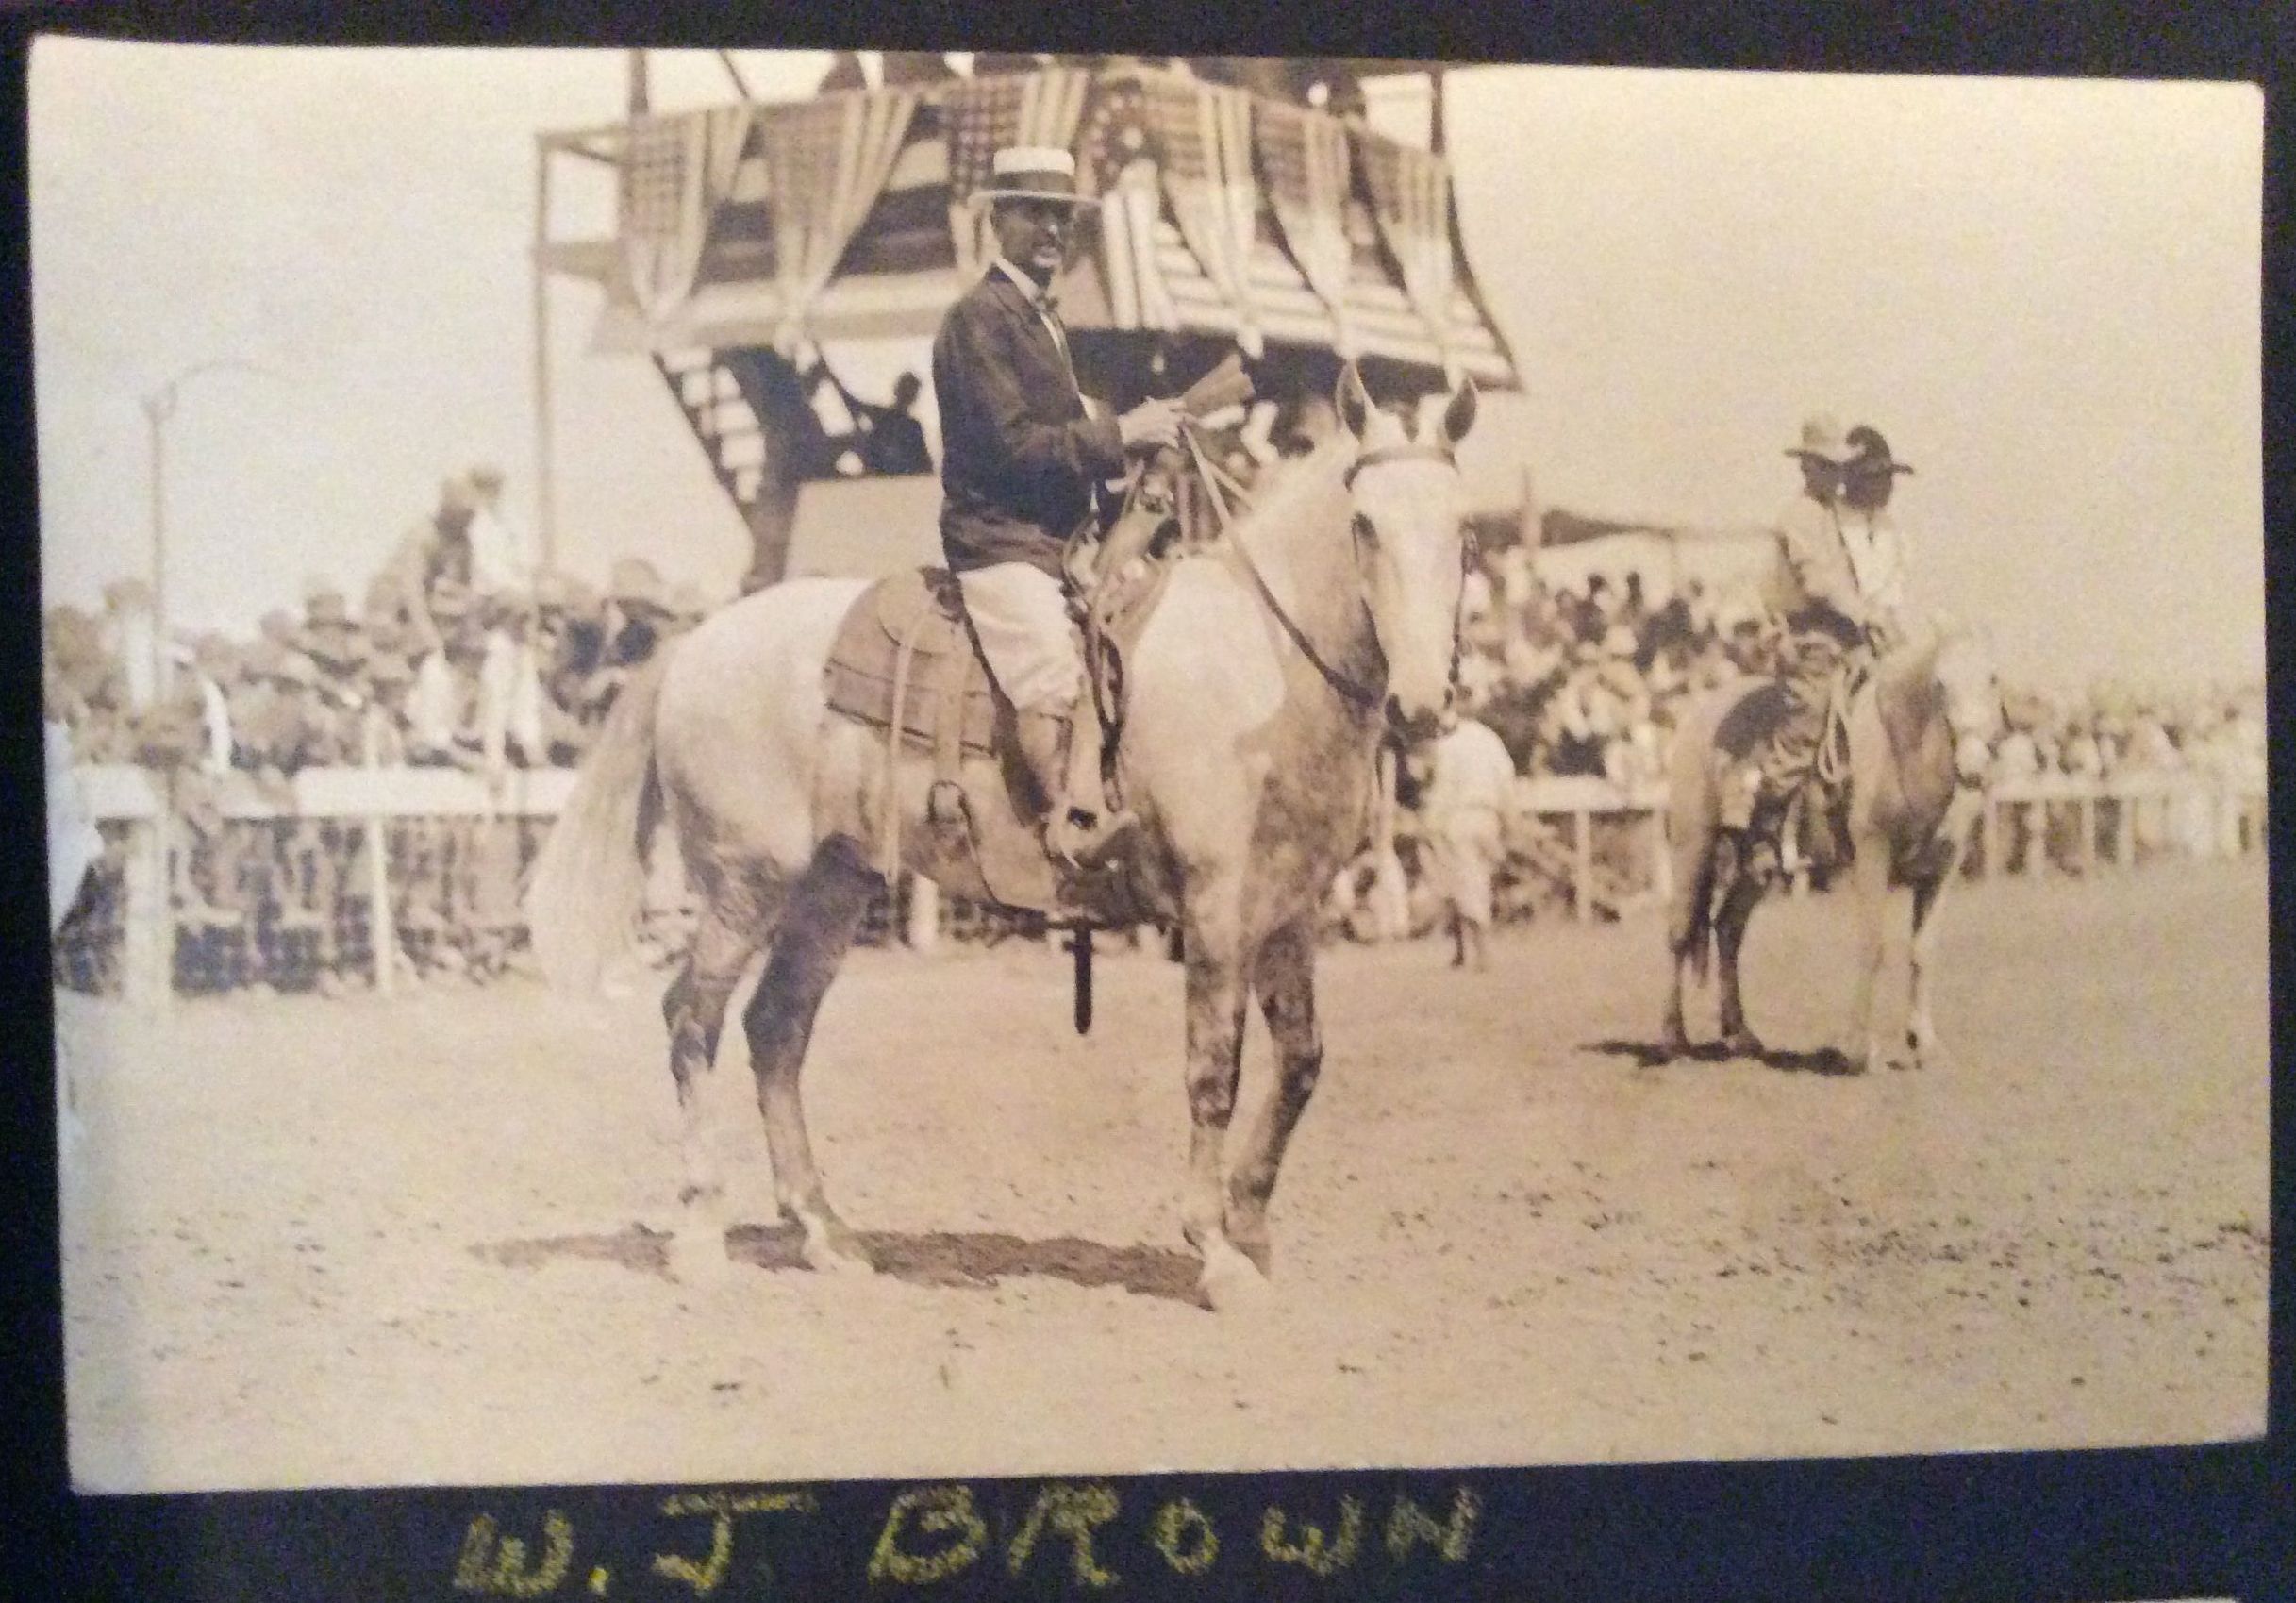 W. J BROWN